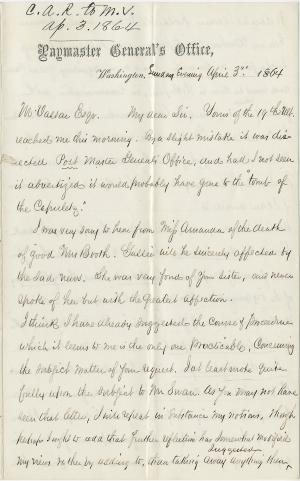 C. A. R. to M. V.
Ap. 3. 1864
Paymaster General's Office,
Washington, Sunday Evening April 3rd 1864
M. Vassar Esqr. My dear Sir. Yours of the 19th Ult.
reached me this morning. By a slight mistake it was dis-
ected Post Master Generals Office, and had I not seen
it advertized it would probably have gone to the "tomb of
the Capuletz."
I was very sorry to hear from Miss Amanda of the death
of good Mrs Booth. will be sincerely affected by
the sad news. She was very fond of your sister, and never
spoke of her but with the greatest affection.
I think I have already suggested the course of procedure
which it seems to me is the only one practicable, concerning
the subject matter of your request. I at least wrote quite
fully upon the subject to Mr Swan. As you may not have
seen that letter, I will repeat in substance my notions, though
perhaps I ought to add that further reflection has somewhat modified
my views rather by adding to, than taking away anything then
suggested